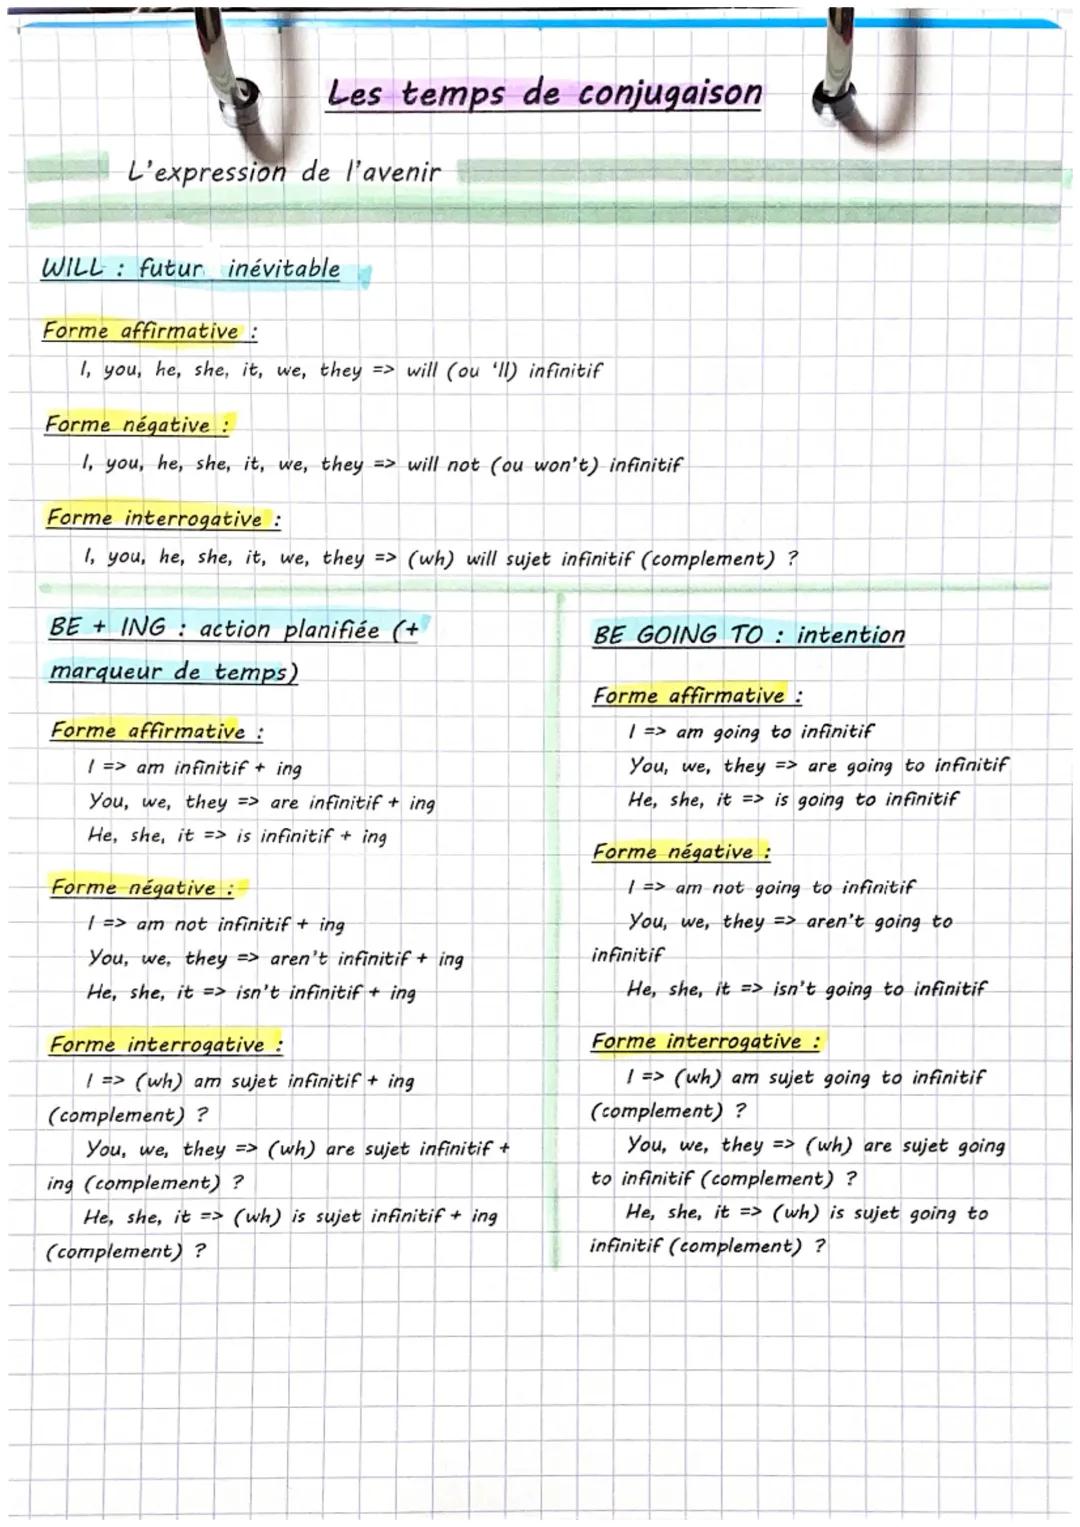 Les temps de conjugaison
L'expression de l'avenir
WILL : futur inévitable
Forme affirmative :
I, you, he, she, it, we, they => will (ou 'll) infinitif
Forme négative :
I, you, he, she, it, we, they => will not (ou won't) infinitif
Forme interrogative :
I, you, he, she, it, we, they => (wh) will sujet infinitif (complement) ?
BE + ING : action planifiée (+
marqueur de temps)
Forme affirmative :
I => am infinitif + ing
You, we, they => are infinitif + ing
He, she, it => is infinitif + ing
Forme négative :
I => am not infinitif + ing
You, we, they => aren't infinitif + ing
He, she, it => isn't infinitif + ing
Forme interrogative :
I => (wh) am sujet infinitif + ing
(complement) ?
You, we, they => (wh) are sujet infinitif +
ing (complement) ?
He, she, it => (wh) is sujet infinitif + ing
(complement) ?
BE GOING TO : intention
Forme affirmative :
I => am going to infinitif
You, we, they => are going to infinitif
He, she, it => is going to infinitif
Forme négative :
I => am not going to infinitif
You, we, they => aren't going to
infinitif
He, she, it => isn't going to infinitif
Forme interrogative :
I => (wh) am sujet going to infinitif
(complement) ?
You, we, they => (wh) are sujet going
to infinitif (complement) ?
He, she, it => (wh) is sujet going to
infinitif (complement) ?